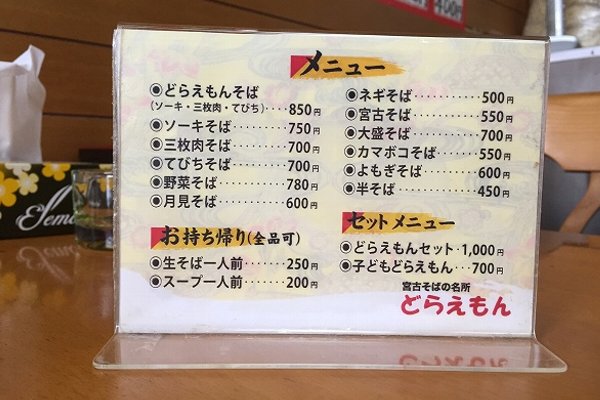 メニュー
◉どらえもんそば
(ソーキ・三枚肉・てびち)‥‥‥850円
◉ソーキそば‥‥‥‥750円
◉三枚肉そば‥‥‥‥700円
◉てびちそば‥‥‥‥700円
◉野菜そば‥‥‥‥780円
◉月見そば‥‥‥‥600円
◉ネギそば‥‥‥‥500円
◉宮古そば‥‥‥‥550円
◉大盛そば‥‥‥‥700円
◉カマボコそば‥‥‥550円
◉よもぎそば‥‥‥‥600円
◉半そば‥‥‥‥450円
お持ち帰り(全品可)
◉生そば一人前‥‥‥250円
◉スープ一人前‥‥‥200円
セットメニュー
◉どらえもんセット‥1,000円
◉子どもどらえもん‥‥700円
宮古そばの名所
どらえもん